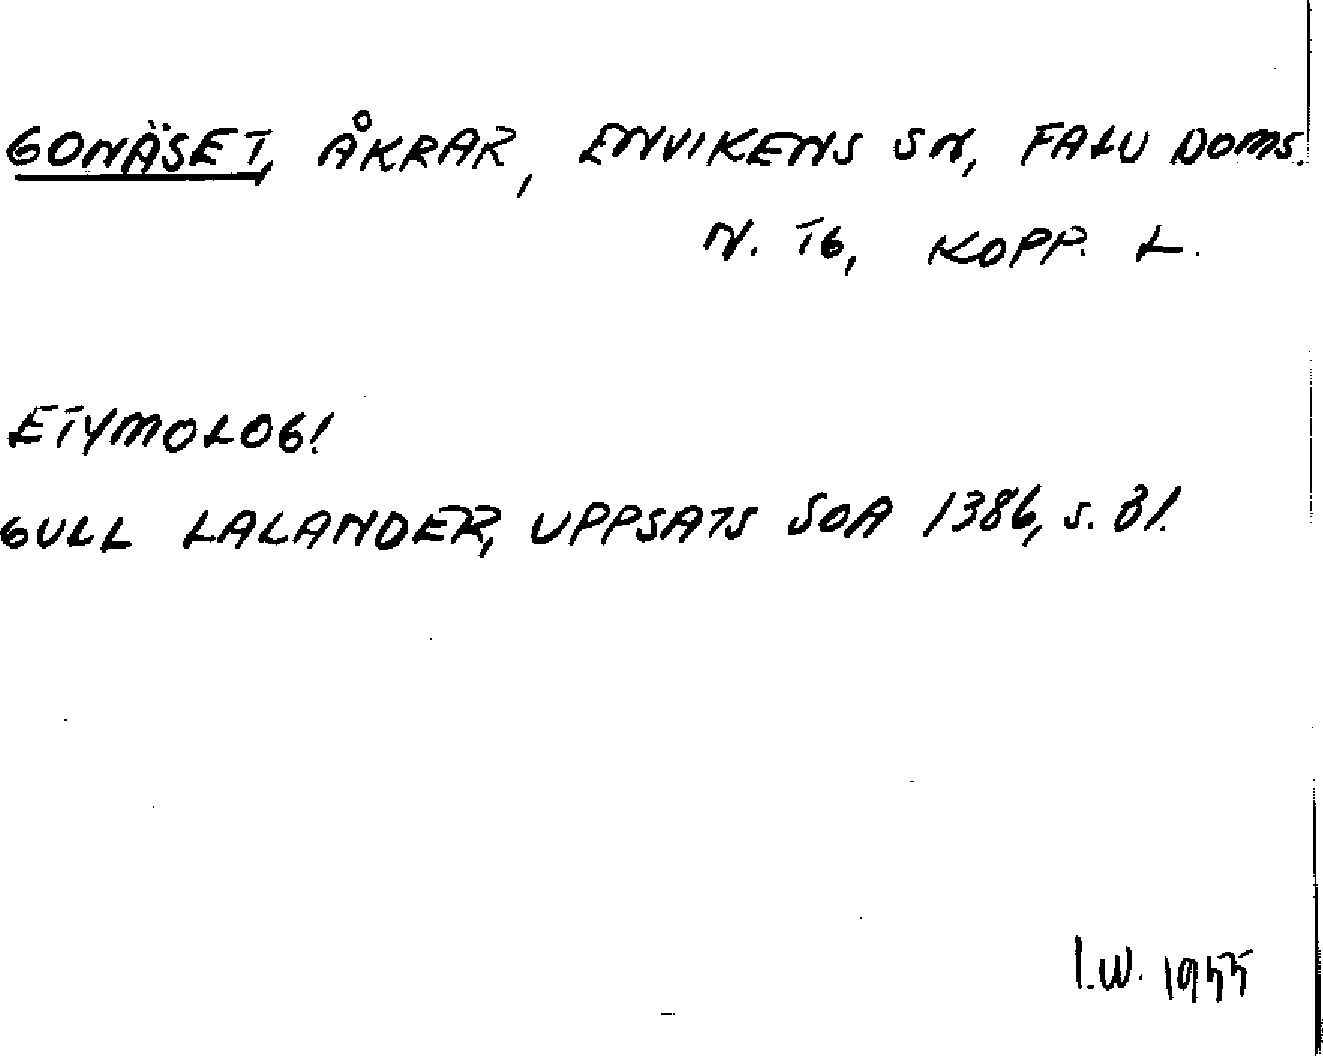 GONÄSET, ÅKRAR, ENVIKENS SN, FALU DOMS.
N. TG, KOPP. L.
ETYMOLOGI
GULL LALANDER, UPPSATS SOA 1386, s. 31.
I.W. 1955